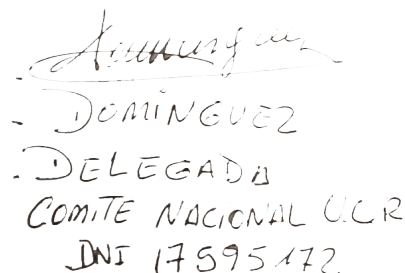 - DOMINGUEZ
. DELEGADA
COMITE NACIONAL U.C.R
DNI 17595172.